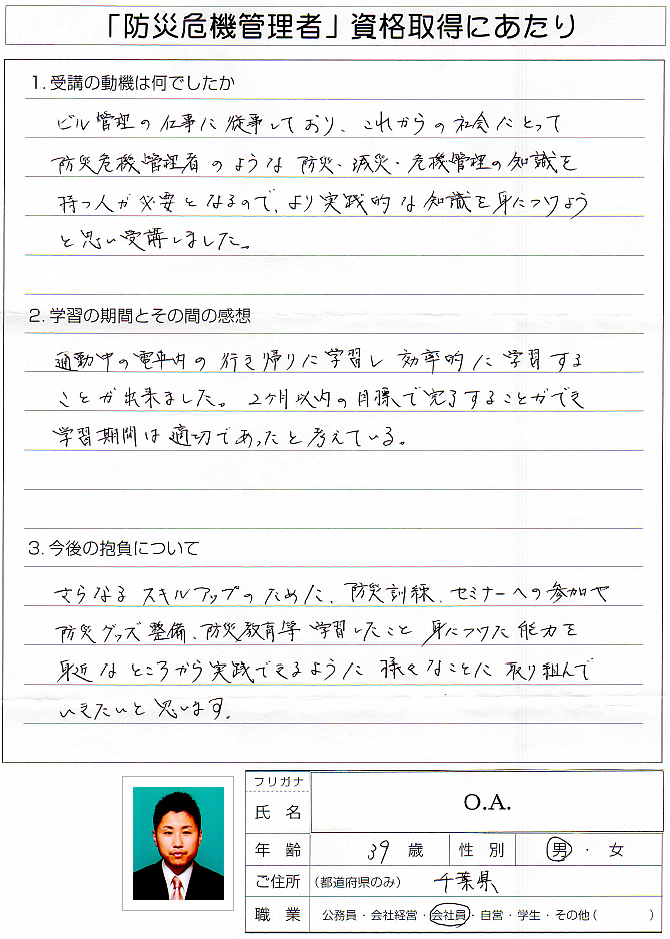 「防災危機管理者」資格取得にあたり
1. 受講の動機は何でしたか
ビル管理の仕事に従事しており、これからの社会にとって
防災危機管理者のような防災・減災・危機管理の知識を
持つ人が必要となるので、より実践的な知識を身につけよう
と思い受講しました。
2. 学習の期間とその間の感想
通勤中の電車内の行き帰りに学習し効率的に学習する
ことが出来ました。2ヶ月以内の目標で完了することができ
学習期間は適切であったと考えている。
3. 今後の抱負について
さらなるスキルアップのために、防災訓練、セミナーへの参加や
防災グッズ整備、防災教育等学習したこと身につけた能力を
身近なところから実践できるように様々なことに取り組んで
いきたいと思います。
フリガナ
氏 名 O.A.
年 齢 39 歳 性 別 男 ・ 女
ご住所 (都道府県のみ) 千葉県
職 業 公務員・会社経営・会社員・自営・学生・その他( )